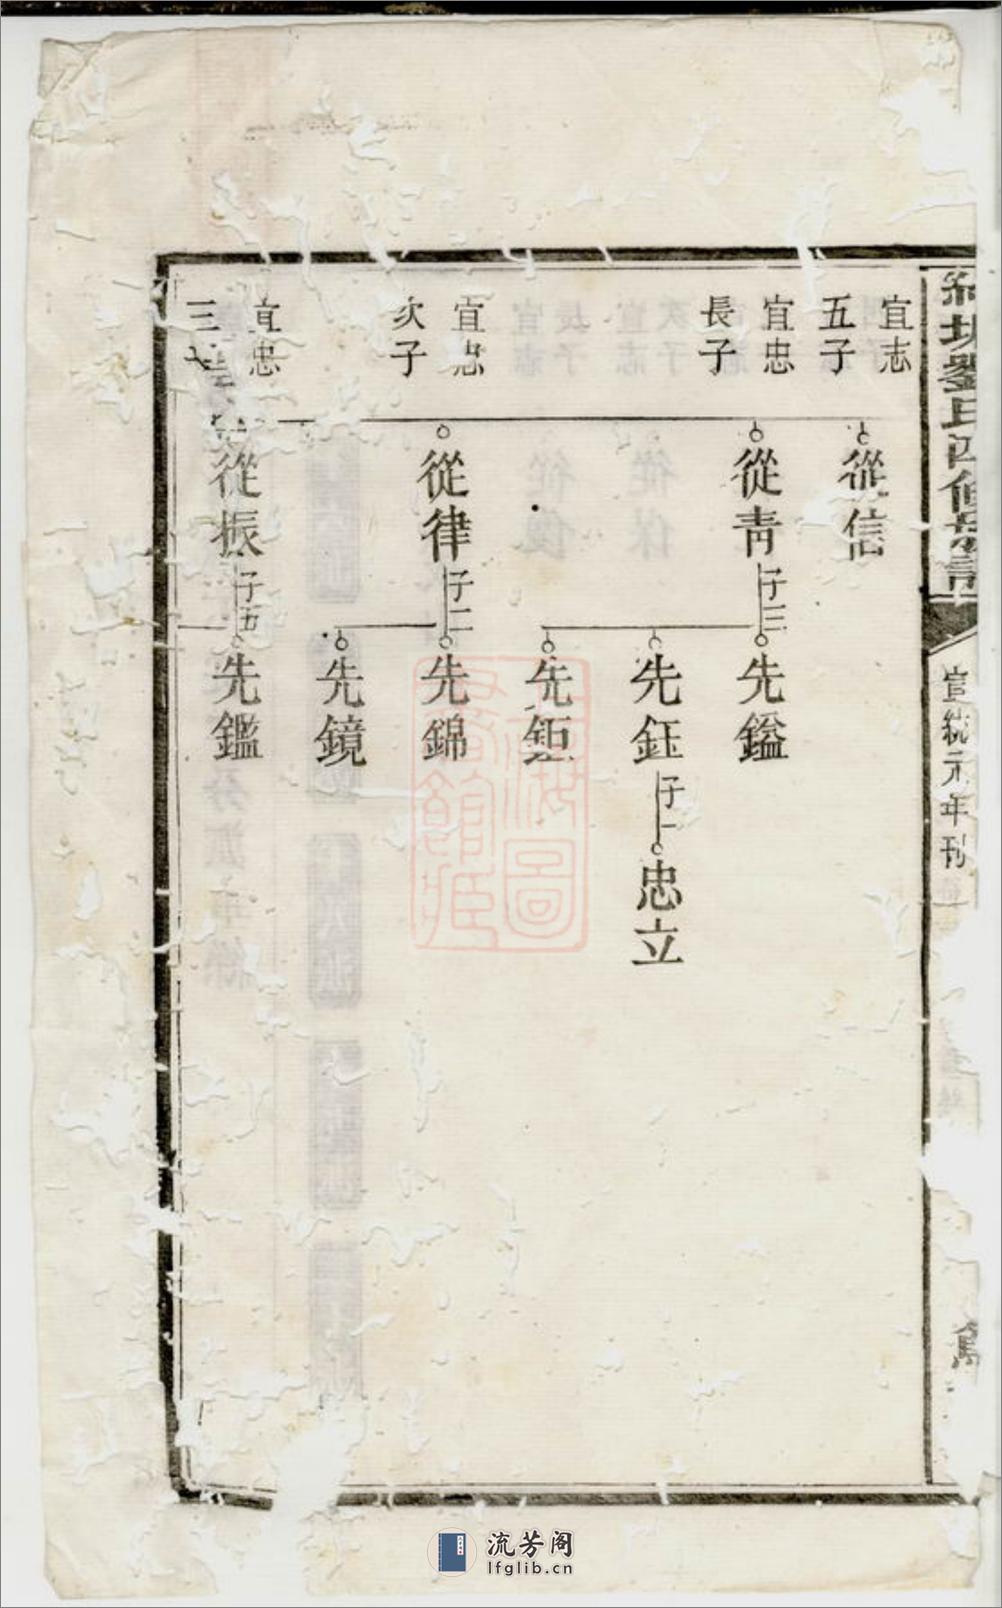 劉氏四修族譜
宣統元年刊
宜志
五子
從信
宜忠
長子
從青
子三
先鎰
先鈺
子一
忠立
先鉅
宜忠
次子
從律
子二
先錦
先鏡
宜忠
三子
從振
子五
先鑑
流芳阁
lfglib.cn